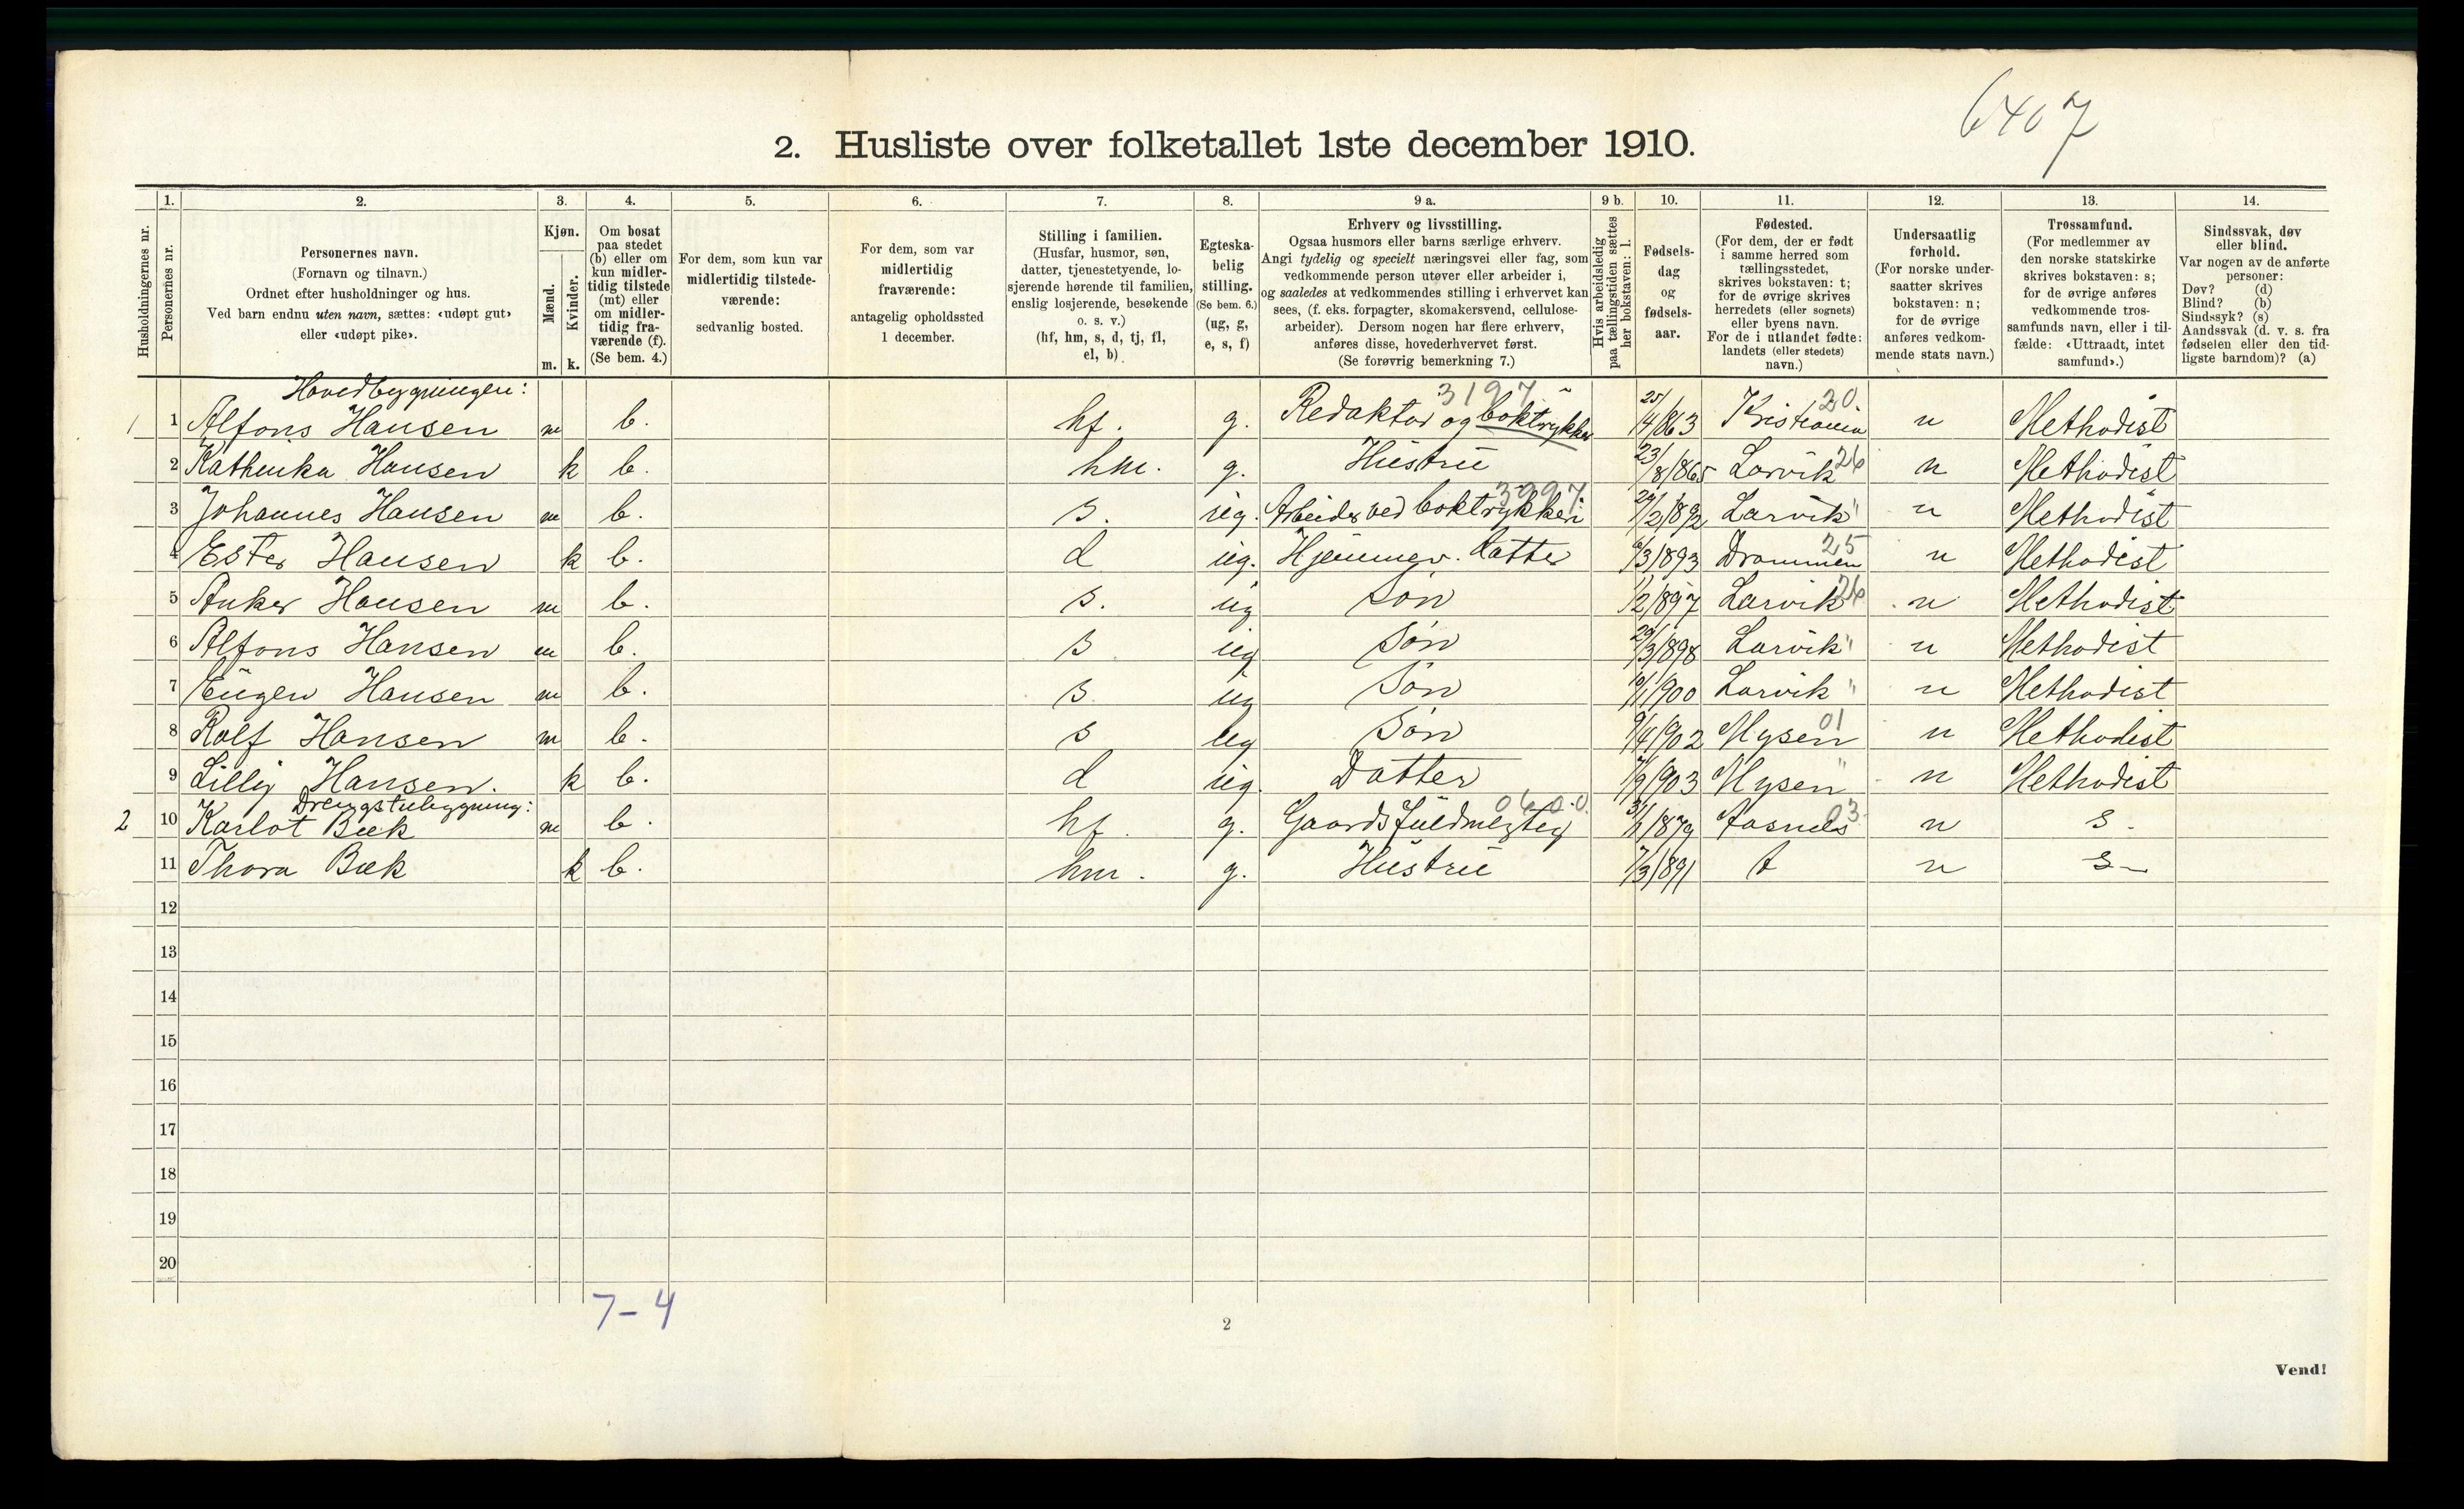 6407
2. Husliste over folketallet 1ste december 1910.
Husholdningernes nr.
1.
Personernes nr.
2.
Personernes navn.
(Fornavn og tilnavn.)
Ordnet efter husholdninger og hus.
Ved barn endnu uten navn, sættes: «udøpt gut»
eller «udøpt pike».
3.
Kjøn.
Mænd.
Kvinder.
m. k.
4.
Om bosat
paa stedet
(b) eller om
kun midler-
tidig tilstede
(mt) eller
om midler-
tidig fra-
værende (f).
(Se bem. 4.)
5.
For dem, som kun var
midlertidig tilstede-
værende:
sedvanlig bosted.
6.
For dem, som var
midlertidig
fraværende:
antagelig opholdssted
1 december.
7.
Stilling i familien.
(Husfar, husmor, søn,
datter, tjenestetyende, lo-
sjerende hørende til familien,
enslig losjerende, besøkende
o. s. v.)
(hf, hm, s, d, tj, fl,
el, b)
8.
Egteska-
belig
stilling.
(Se bem. 6.)
(ug, g,
e, s, f)
9 a.
Erhverv og livsstilling.
Ogsaa husmors eller barns særlige erhverv.
Angi tydelig og specielt næringsvei eller fag, som
vedkommende person utøver eller arbeider i,
og saaledes at vedkommendes stilling i erhvervet kan
sees, (f. eks. forpagter, skomakersvend, cellulose-
arbeider). Dersom nogen har flere erhverv,
anføres disse, hovederhvervet først.
(Se forøvrig bemerkning 7.)
9 b.
Hvis arbeidsledig
paa tællingstiden sættes
her bokstaven: l.
10.
Fødsels-
dag
og
fødsels-
aar.
11.
Fødested.
(For dem, der er født
i samme herred som
tællingsstedet,
skrives bokstaven: t;
for de øvrige skrives
herredets (eller sognets)
eller byens navn.
For de i utlandet fødte:
landets (eller stedets)
navn.)
12.
Undersaatlig
forhold.
(For norske under-
saatter skrives
bokstaven: n;
for de øvrige
anføres vedkom-
mende stats navn.)
13.
Trossamfund.
(For medlemmer av
den norske statskirke
skrives bokstaven: s;
for de øvrige anføres
vedkommende tros-
samfunds navn, eller i til-
fælde: «Uttraadt, intet
samfund».)
14.
Sindssvak, døv
eller blind.
Var nogen av de anførte
personer:
Døv? (d)
Blind? (b)
Sindssyk? (s)
Aandssvak (d. v. s. fra
fødselen eller den tid-
ligste barndom)? (a)
Hovedbygningen:
3197 20
1 1 Alfons Hansen m b. hf. g. Redaktør og boktrykker 25/4/863 Kristiania n Methodist
2 Kathinka Hansen k b. hm. g. Hustru 23/8/865 Larvik 26 n Methodist
3997
3 Johannes Hansen m b. s. ug. Arbeider ved boktrykkeri /2/892 Larvik " n Methodist
25
4 Ester Hansen k b. d ug. Hjemmev. datter /3/893 Drammen n Methodist
5 Anker Hansen m b. s. ug Søn 1/2/897 Larvik 26 n Methodist
6 Alfons Hansen m b. s ug Søn 29/3/898 Larvik " n Methodist
7 Eugen Hansen m b. s. ug Søn /1/900 Larvik " n Methodist
01
8 Rolf Hansen m b. s ug Søn 9/4/902 Mysen n Methodist
9 Lilly Hansen. k b. d ug. Datter 7/9/903 Mysen " n Methodist
Drengstubygning:
0600 03
2 10 Karlot Bæk m b. hf. g. Gaardsfuldmegtig 3/1/879 n s.
11 Thora Bæk k b. hm. g. Hustru 7/3/891 t n s
12
13
14
15
16
17
18
19
20
7-4
2
Vend!